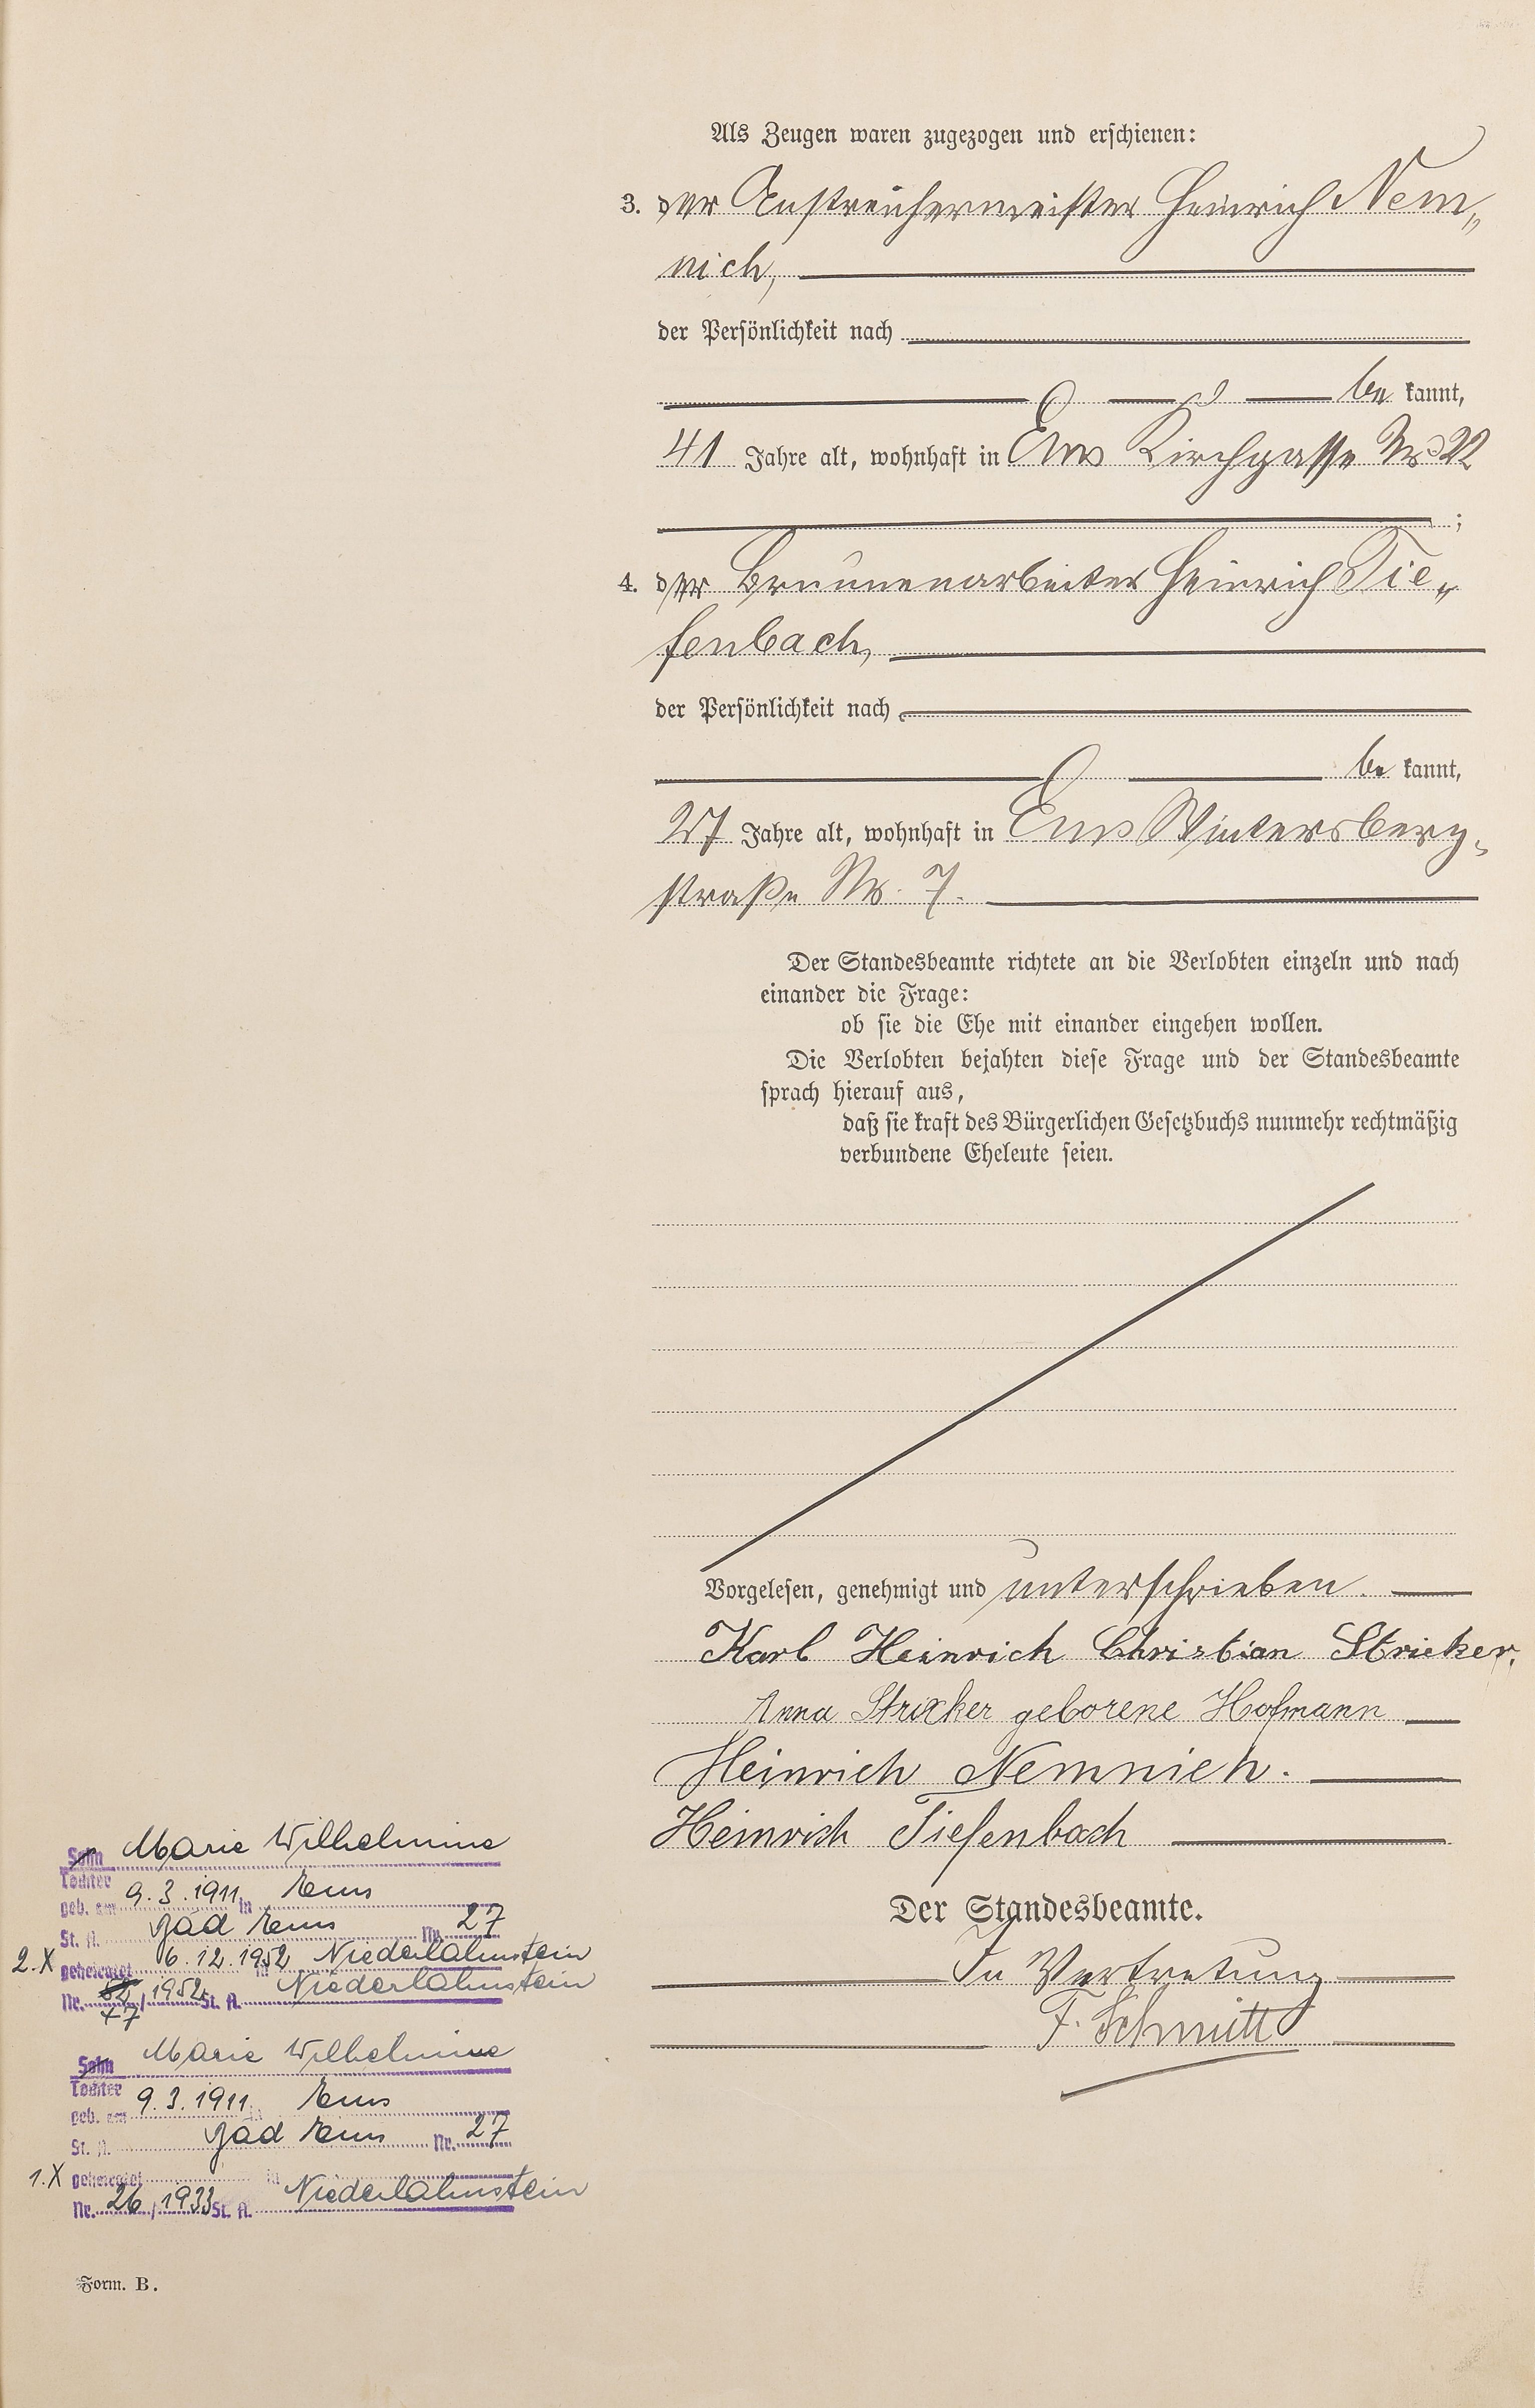 Als Zeugen waren zugezogen und erschienen:
3. der Anstreichermeister Heinrich Nem„
nich,
der Persönlichkeit nach
be kannt,
41 Jahre alt, wohnhaft in Ems Kirchgasse No 22
;
4. der Brunnenarbeiter Heinrich Tie„
fenbach,
der Persönlichkeit nach
be kannt,
27 Jahre alt, wohnhaft in Ems Wintersberg„
straße No. 7.
Der Standesbeamte richtete an die Verlobten einzeln und nach
einander die Frage:
ob sie die Ehe mit einander eingehen wollen.
Die Verlobten bejahten diese Frage und der Standesbeamte
sprach hierauf aus,
daß sie kraft des Bürgerlichen Gesetzbuchs nunmehr rechtmäßig
verbundene Eheleute seien.
Vorgelesen, genehmigt und unterschrieben.
Karl Heinrich Christian Stricker.
Anna Stricker geborene Hofmann
Heinrich Nemnich.
Heinrich Tiefenbach
Der Standesbeamte.
In Vertretung
F. Schmitt
Sohn Marie Wilhelmine
Tochter
geb. am 9.3.1911 in Ems
St. A. Bad Ems Nr. 27
2. X geheiratet 6.12.1952 in Niederlahnstein
Nr. 52 / 1952 St. A. Niederlahnstein
47
Sohn Marie Wilhelmine
Tochter
geb. am 9.3.1911 in Ems
St. A. Bad Ems Nr. 27
1. X geheiratet in
Nr. 26 / 1933 St. A. Niederlahnstein
Form. B.